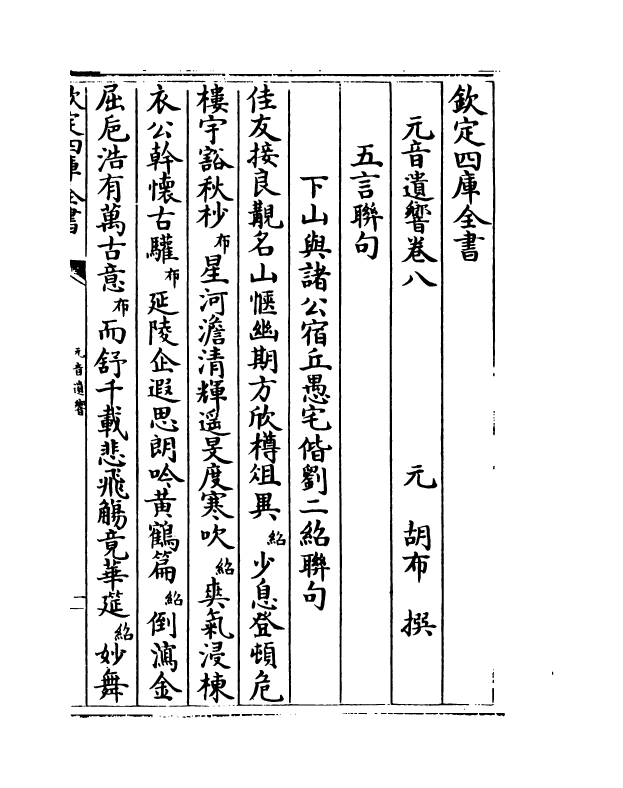 欽定四庫全書
元音遺響卷八
元 胡布 撰
五言聯句
下山與諸公宿丘愚宅偕劉二紹聯句
佳友接良覯名山愜幽期方欣樽俎異紹少息登頓危
樓宇豁秋杪布星河澹清輝遥旻度寒吹紹爽氣浸棟
衣公幹懷古驩布延陵企遐思朗吟黄鶴篇紹倒瀉金
屈巵浩有萬古意布而舒千載悲飛觴竟華筵紹妙舞
欽定四庫全書
元音遺響